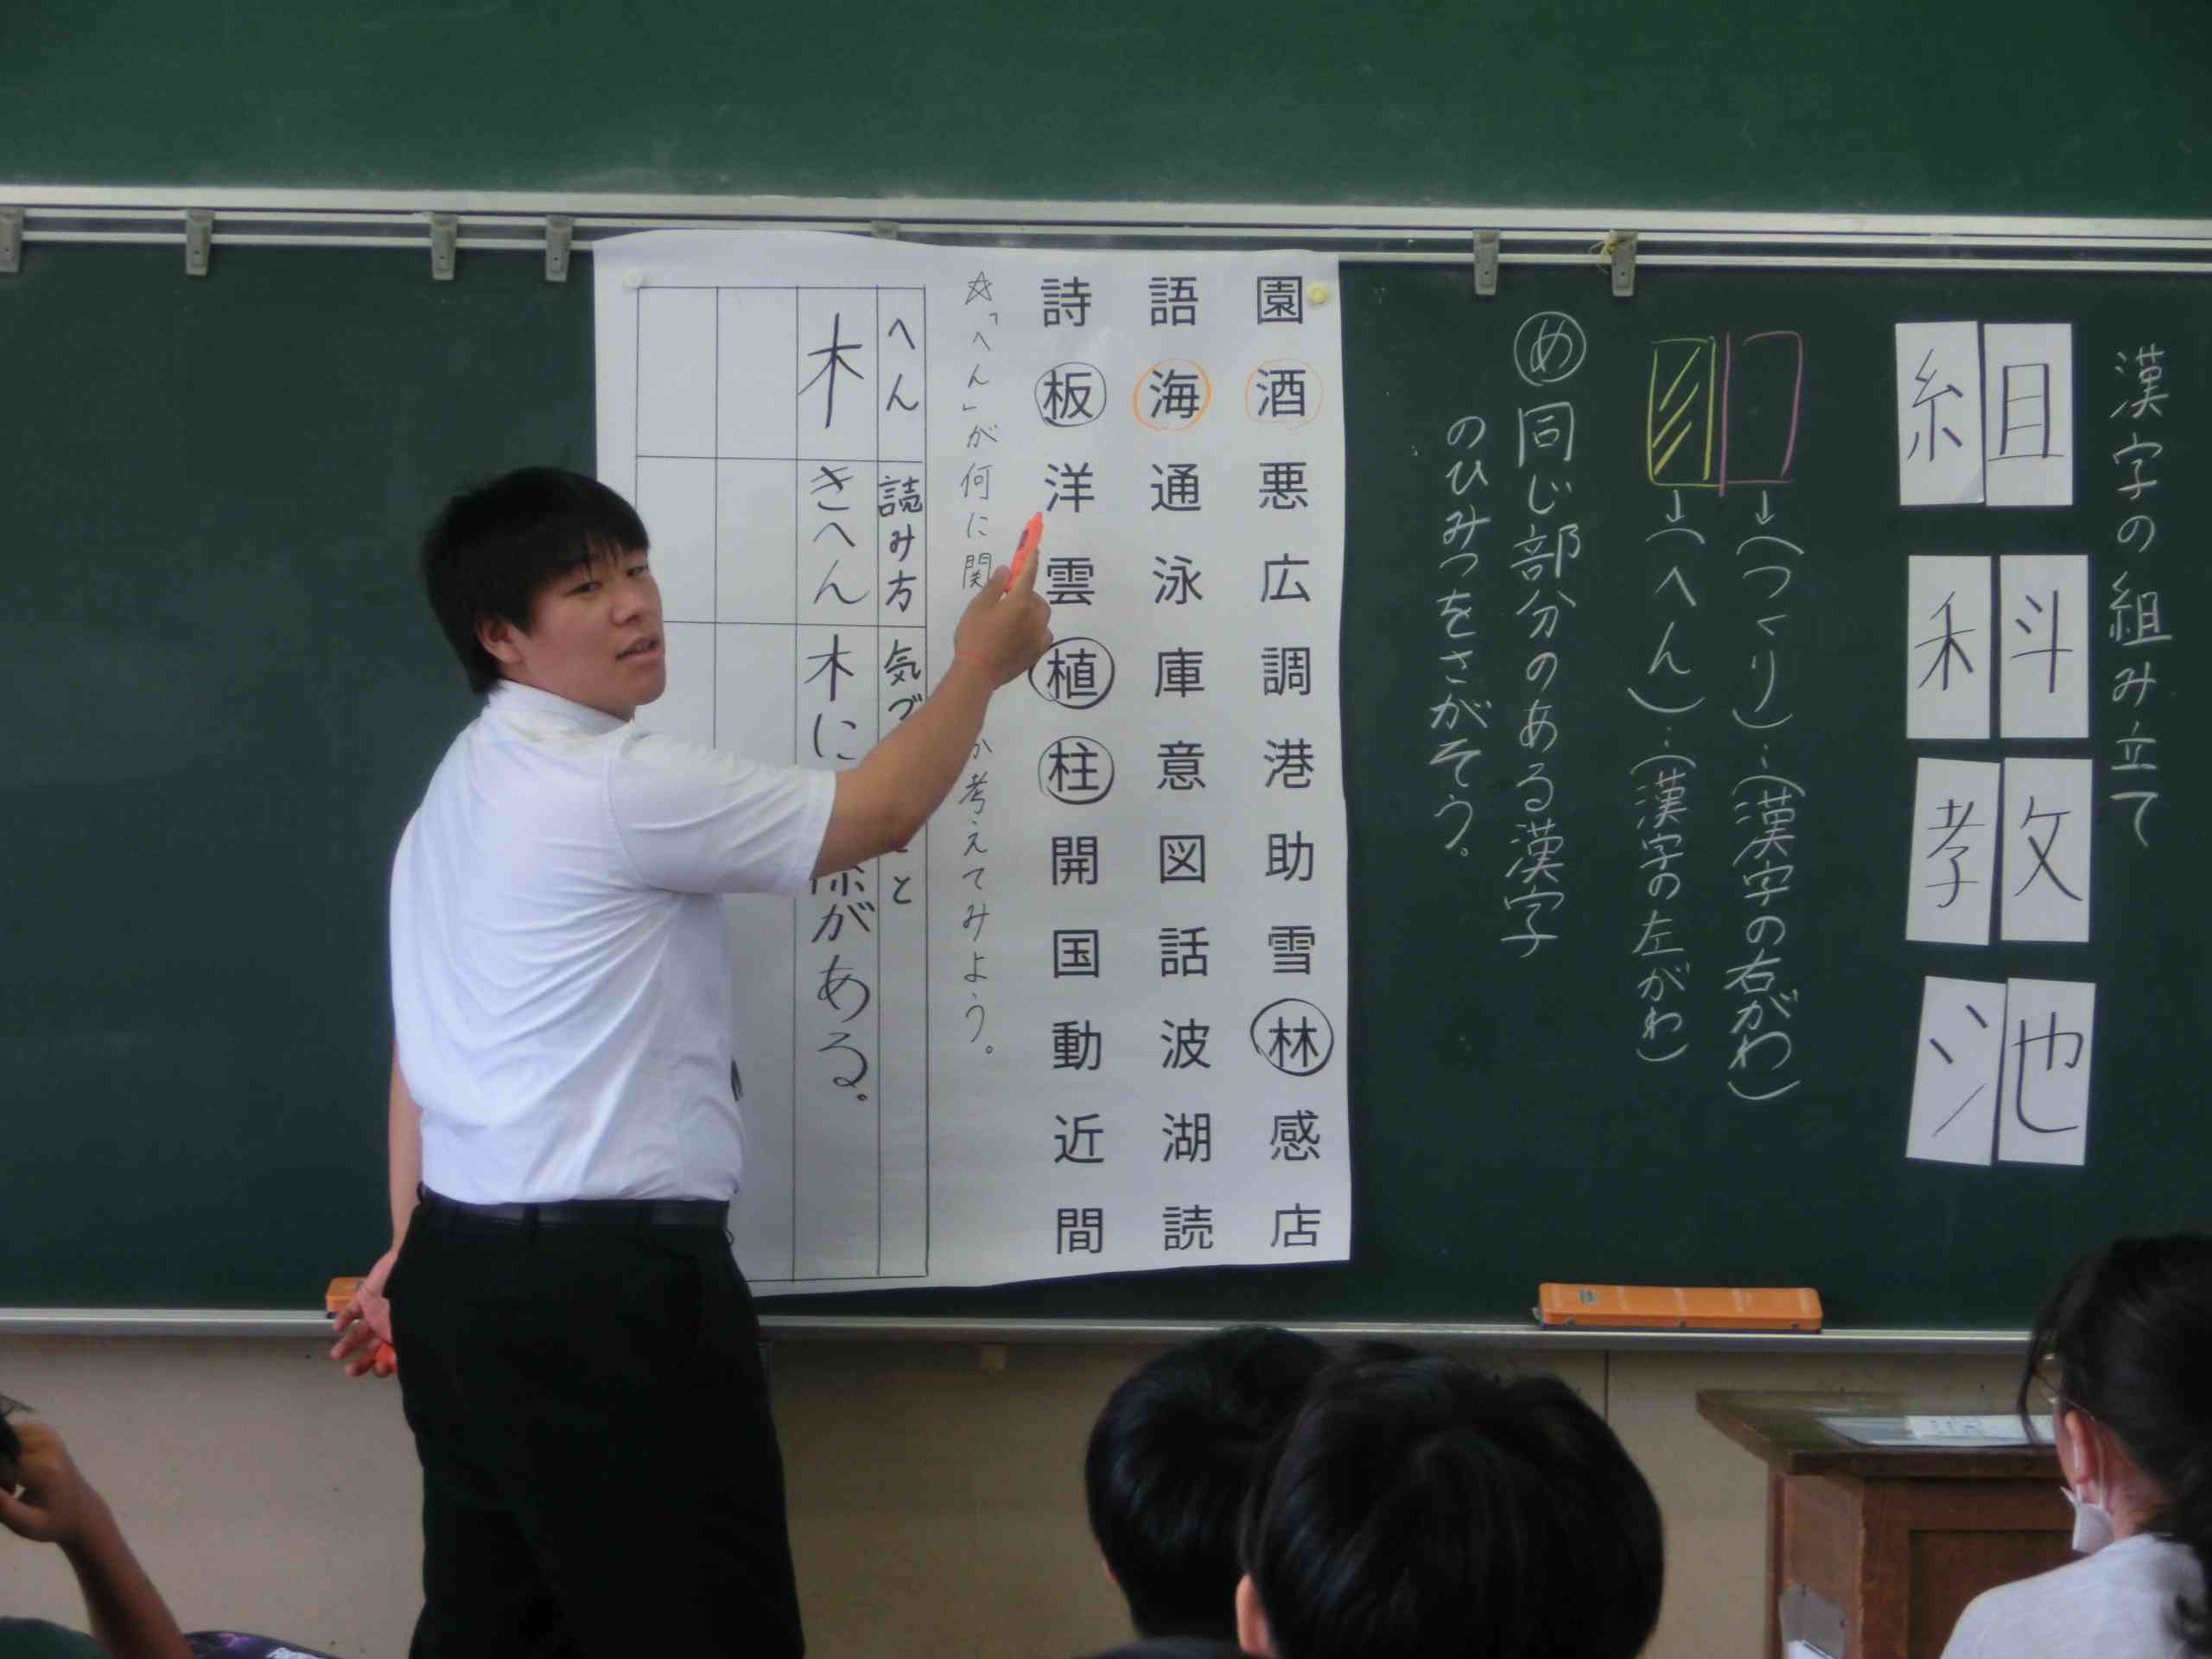 漢字の組み立て
組
科
教
池
↓(つくり)…(漢字の右がわ)
↓(へん)…(漢字の左がわ)
め 同じ部分のある漢字
のひみつをさがそう。
園 酒 悪 広 調 港 助 雪 林 感 店
語 海 通 泳 庫 意 図 話 波 湖 読
詩 板 洋 雲 植 柱 開 国 動 近 間
☆「へん」が何に関 か考えてみよう。
へん 読み方 気づ と
木 きへん 木に 係がある。